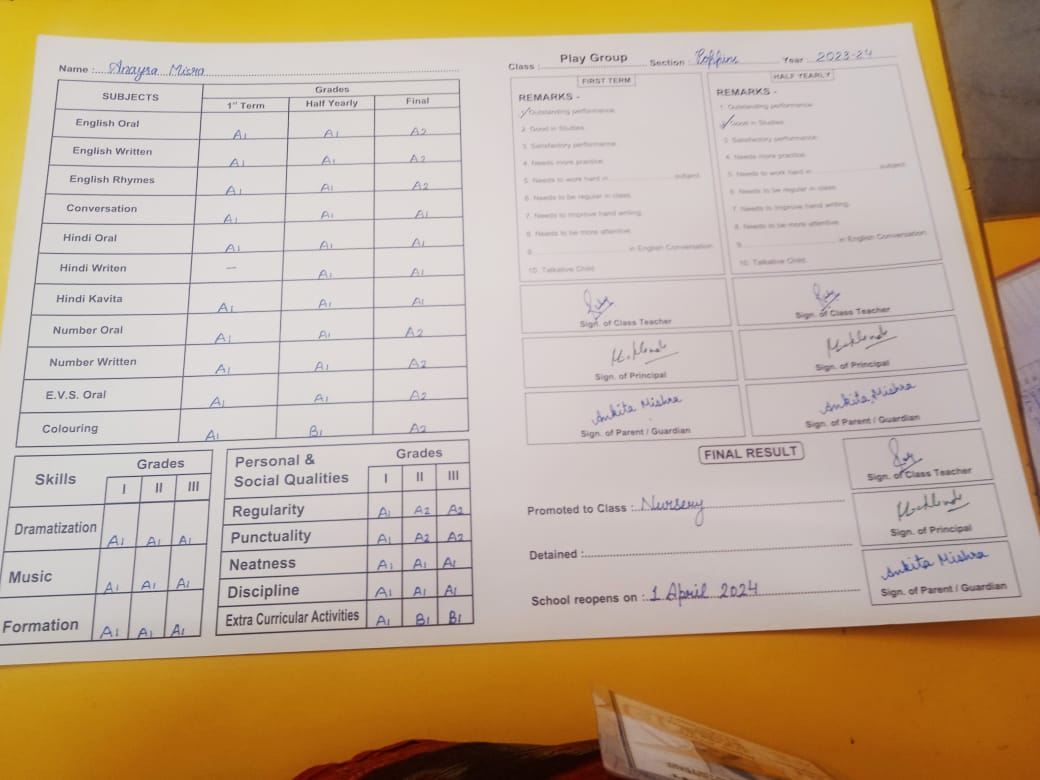 Name : Anayra Misra
SUBJECTS Grades
1st Term Half Yearly Final
English Oral A1 A1 A2
English Written A1 A1 A2
English Rhymes A1 A1 A2
Conversation A1 A1 A1
Hindi Oral A1 A1 A1
Hindi Writen — A1 A1
Hindi Kavita A1 A1 A1
Number Oral A1 A1 A2
Number Written A1 A1 A2
E.V.S. Oral A1 A1 A2
Colouring A1 B1 A2
Skills Grades
I II III
Dramatization A1 A1 A1
Music A1 A1 A1
Formation A1 A1 A1
Personal & Social Qualities Grades
I II III
Regularity A1 A2 A2
Punctuality A1 A2 A2
Neatness A1 A1 A1
Discipline A1 A1 A1
Extra Curricular Activities A1 B1 B1
Class : Play Group Section : Poppins Year 2023-24
FIRST TERM
REMARKS -
1. Outstanding performance.
2. Good in Studies.
3. Satisfactory performance.
4. Needs more practice.
5. Needs to work hard in subject.
6. Needs to be regular in class.
7. Needs to improve hand writing.
8. Needs to be more attentive.
9. in English Conversation
10. Talkative Child.
Sign. of Class Teacher
Sign. of Principal
Ankita Mishra
Sign. of Parent / Guardian
HALF YEARLY
REMARKS -
1. Outstanding performance.
2. Good in Studies.
3. Satisfactory performance.
4. Needs more practice.
5. Needs to work hard in subject.
6. Needs to be regular in class.
7. Needs to improve hand writing.
8. Needs to be more attentive.
9. in English Conversation
10. Talkative Child.
Sign. of Class Teacher
Sign. of Principal
Ankita Mishra
Sign. of Parent / Guardian
FINAL RESULT
Promoted to Class : Nursery
Detained :
School reopens on : 1 April 2024
Sign. of Class Teacher
Sign. of Principal
Ankita Mishra
Sign. of Parent / Guardian